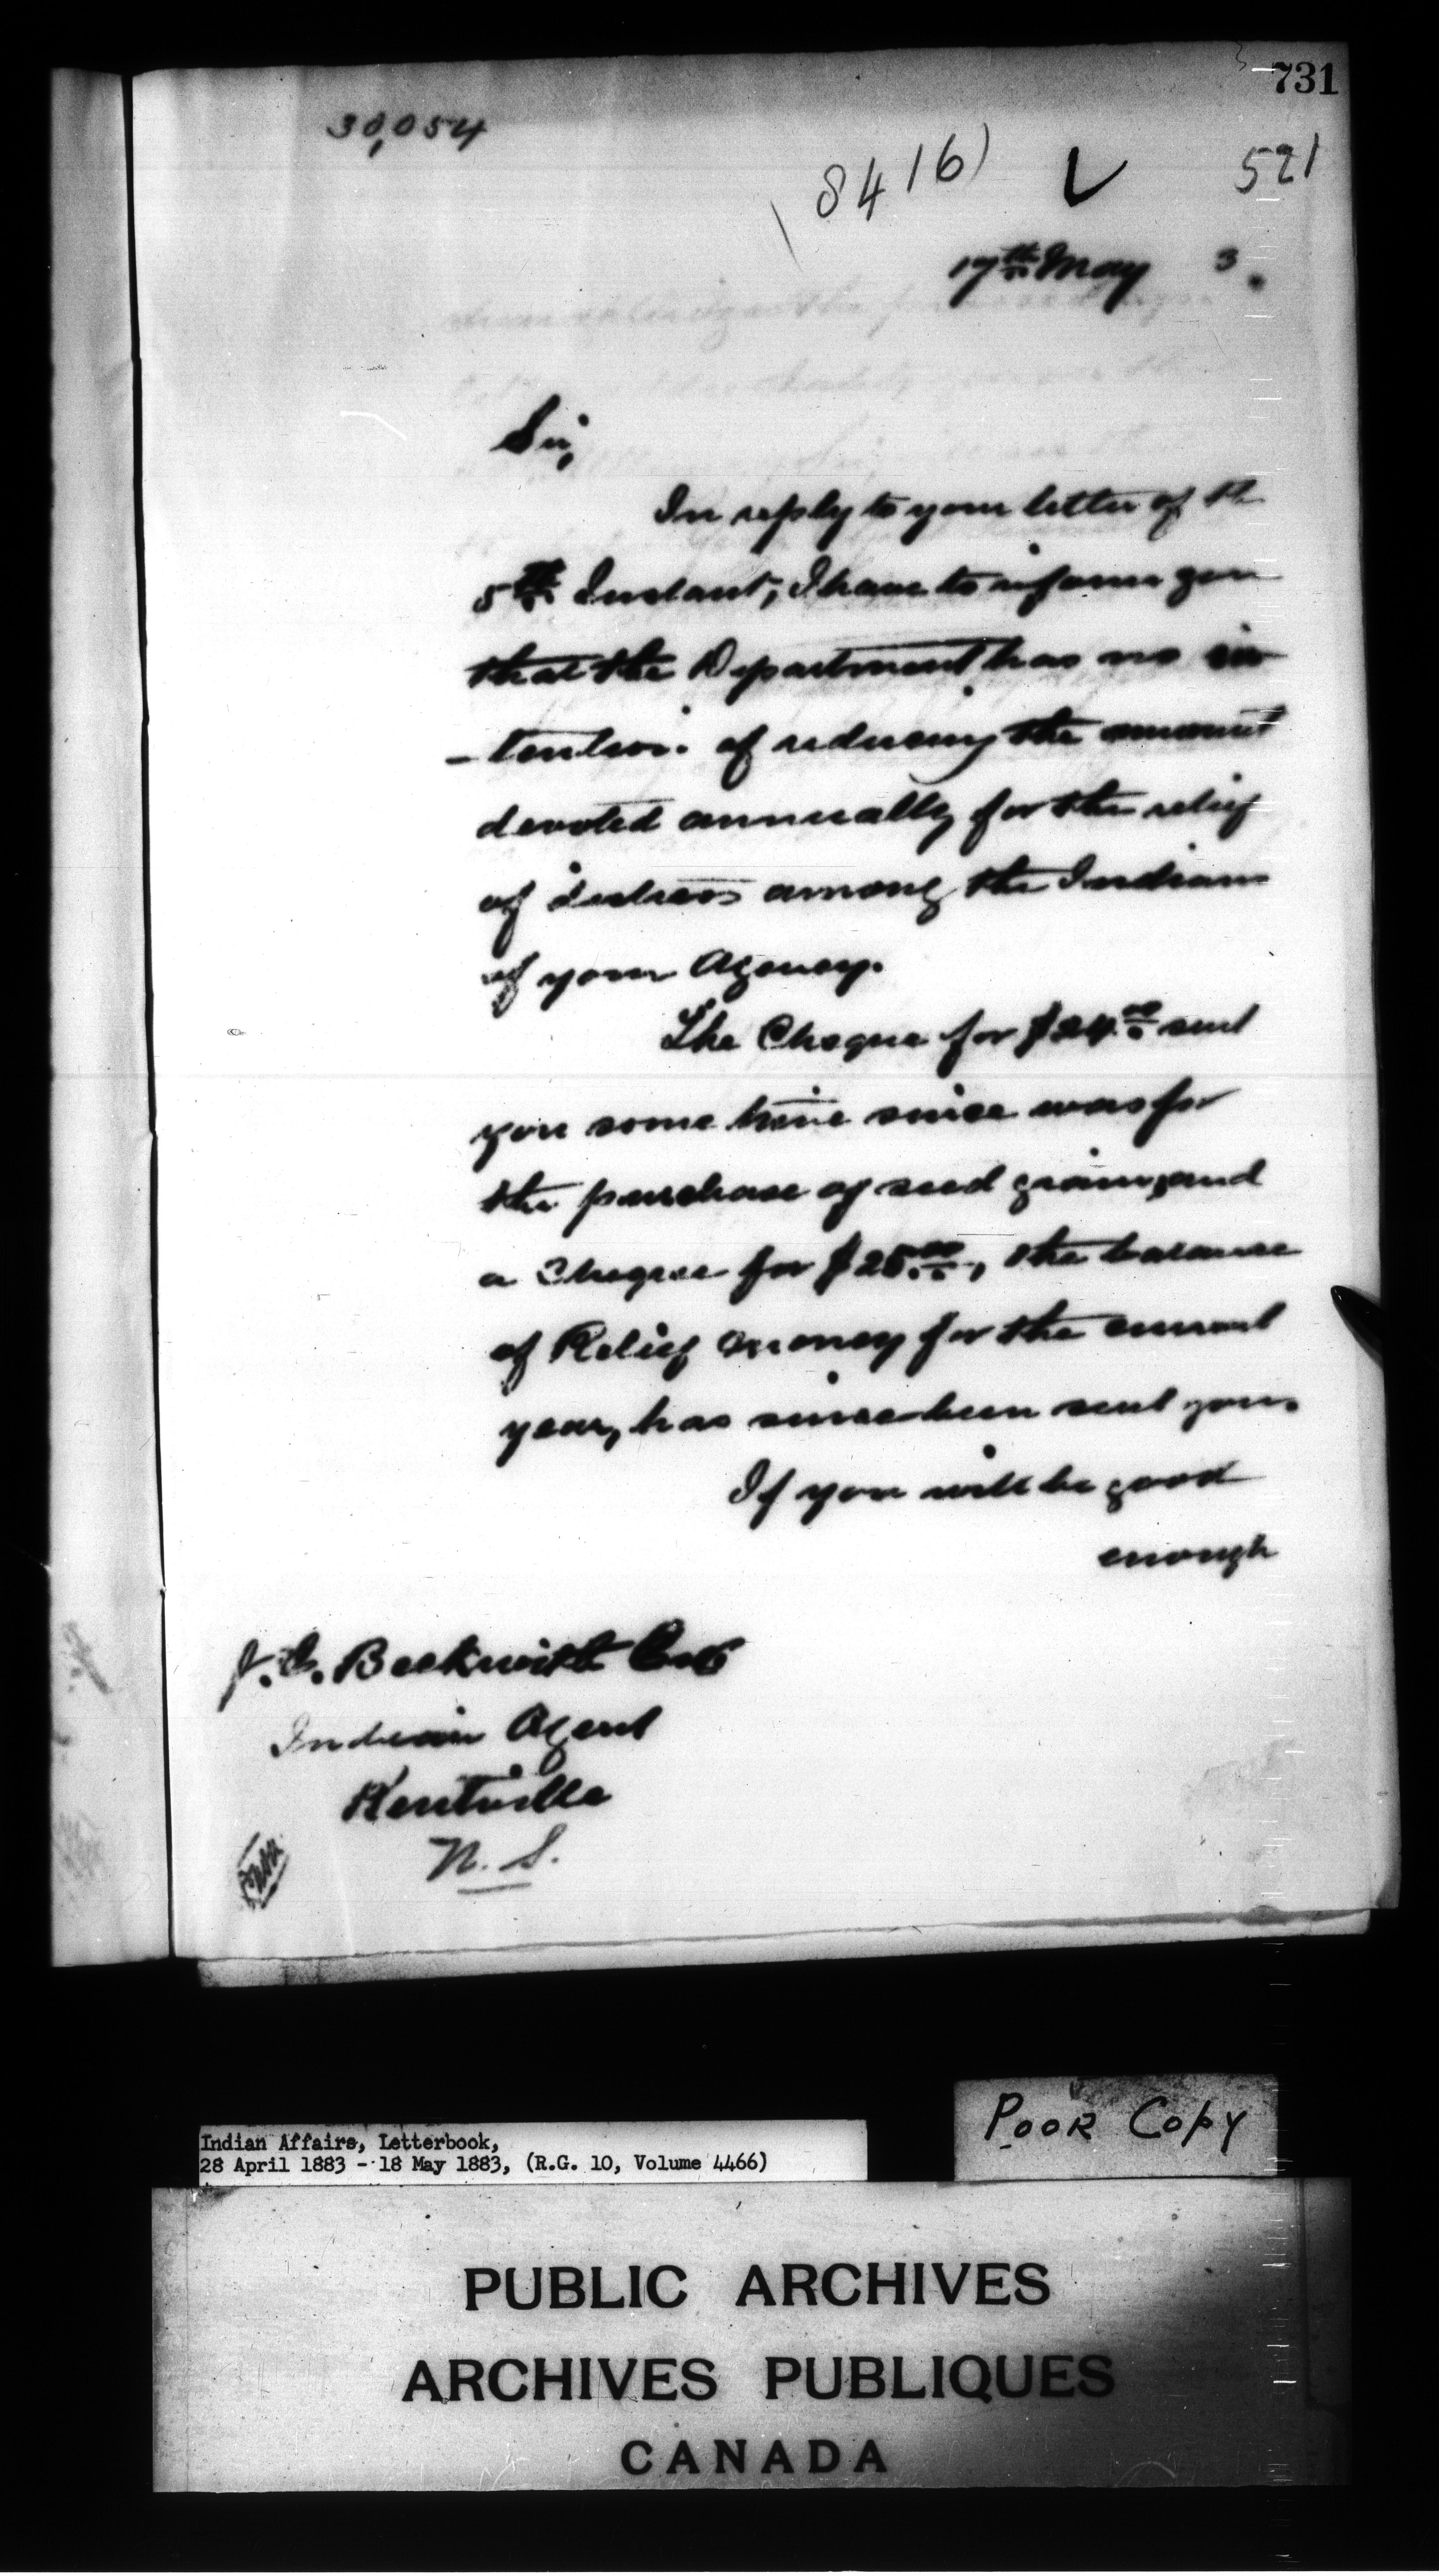 731
30,054
8416)
521
17th May 3.
Sir,
In reply to your letter of the
5th Instant, I have to inform you
that the Department has no in
-tention of reducing the amount
devoted annually for the relief
of distress among the Indians
of your Agency.
The Cheque for $24.00 sent
you some time since was for
the purchase of seed grain, and
a Cheque for $25.00, the balance
of Relief money for the current
year, has since been sent you.
If you will be good
enough
Beckwith Esq
Indian Agent
Kentville
N. S.
Poor Copy
Indian Affairs, Letterbook,
28 April 1883 - 18 May 1883, (R.G. 10, Volume 4466)
PUBLIC ARCHIVES
ARCHIVES PUBLIQUES
CANADA